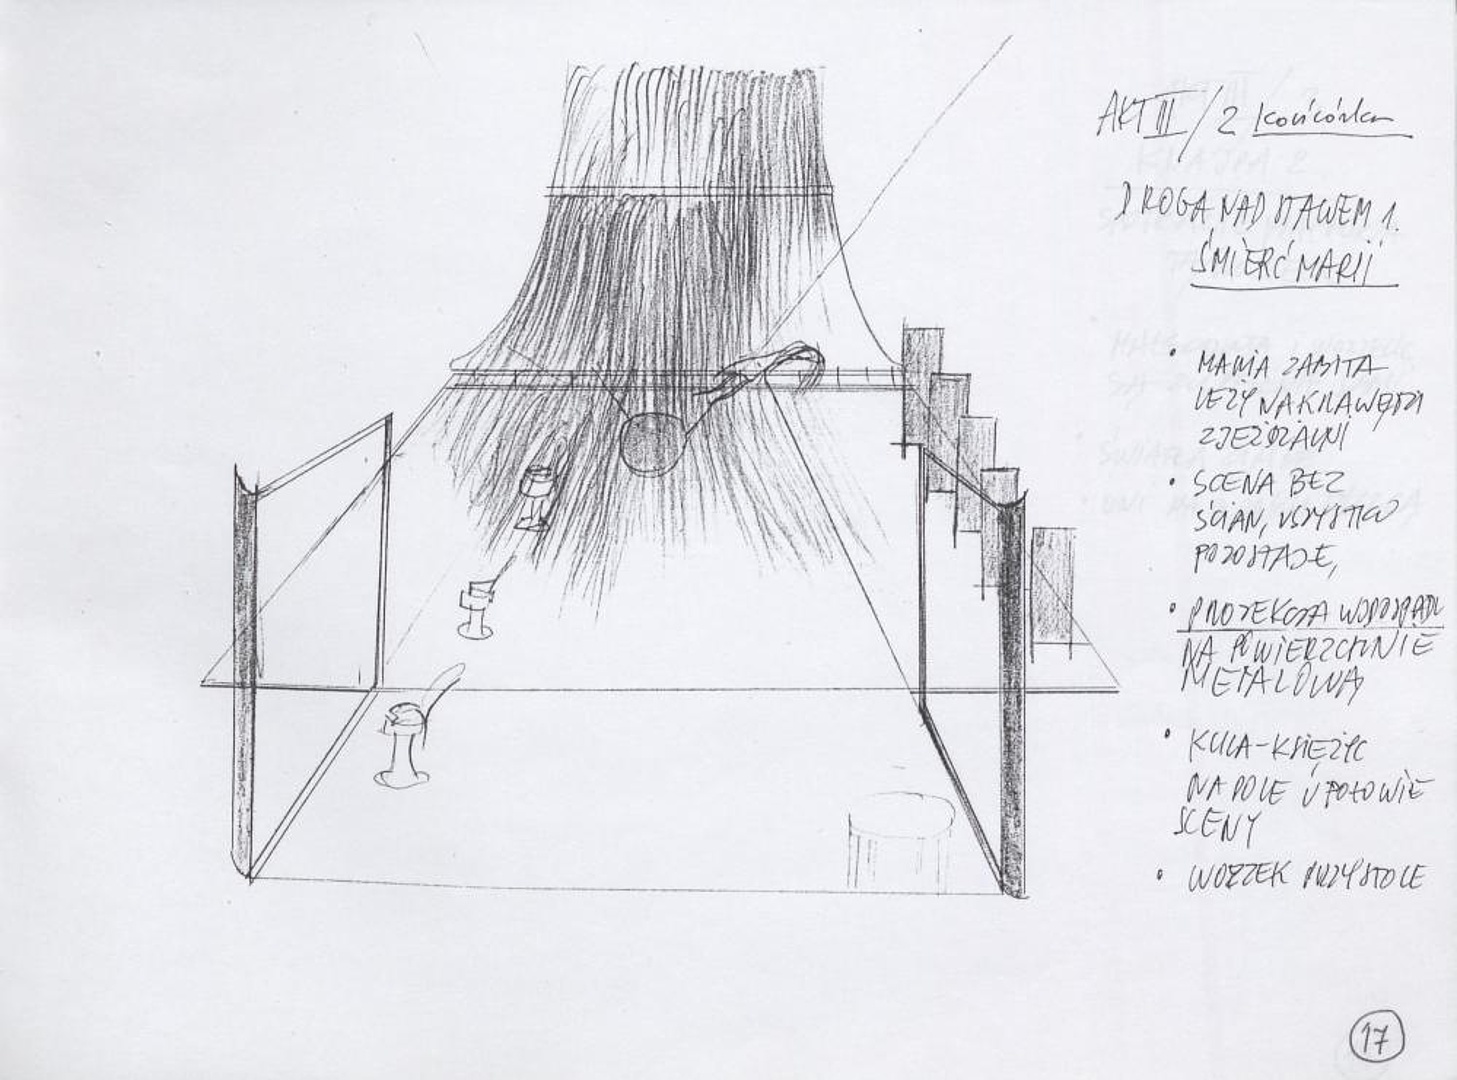 AKT III / 2 końcówka
DROGA NAD STAWEM 1.
ŚMIERĆ MARII
• MARIA ZABITA
LEŻY NA KRAWĘDZI
ZJEŻDŻALNI
• SCENA BEZ
ŚCIAN, WSZYSTKO
POZOSTAJE,
• PROJEKCJA WODOSPADU
NA POWIERZCHNIE
METALOWĄ
• KULA-KSIĘŻYC
NA POLE W POŁOWIE
SCENY
• WOZZEK PRZY STOLE
17